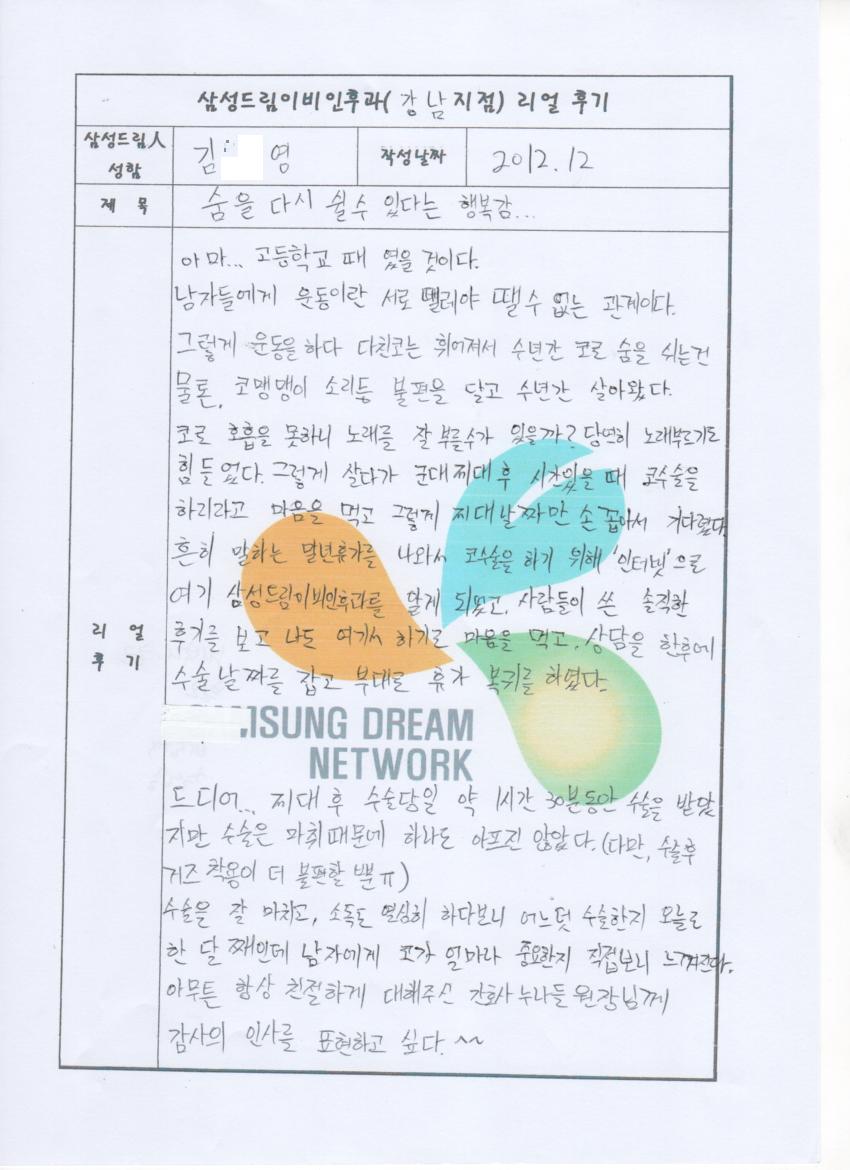 삼성드림이비인후과(강남지점) 리얼 후기
삼성드림人 성함
김 영
작성날짜
2012.12
제 목
숨을 다시 쉴수 있다는 행복감...
리 얼 후 기
아마... 고등학교 때 였을 것이다.
남자들에게 운동이란 서로 뗄레야 뗄수 없는 관계이다.
그렇게 운동을 하다 다친코는 휘어져서 수년간 코로 숨을 쉬는건
물론, 코맹맹이 소리등 불편을 달고 수년간 살아왔다.
코로 호흡을 못하니 노래를 잘 부를수가 있을까? 당연히 노래부르기도
힘들었다. 그렇게 살다가 군대 제대 후 시간있을 때 코수술을
하리라고 마음을 먹고 그렇게 제대날짜만 손꼽아서 기다렸다.
흔히 말하는 말년휴가를 나와서 코수술을 하기 위해 '인터넷'으로
여기 삼성드림이비인후과를 알게 되었고, 사람들이 쓴 솔직한
후기를 보고 나도 여기서 하기로 마음을 먹고, 상담을 한후에
수술날짜를 잡고 부대로 휴가 복귀를 하였다.
SUNG DREAM
NETWORK
드디어... 제대 후 수술당일 약 1시간 30분동안 수술을 받았
지만 수술은 마취때문에 하나도 아프진 않았다. (다만, 수술후
거즈 착용이 더 불편할 뿐ㅠ)
수술을 잘 마치고, 소독도 열심히 하다보니 어느덧 수술한지 오늘로
한 달 째인데 남자에게 코가 얼마나 중요한지 직접보니 느껴진다.
아무튼 항상 친절하게 대해주신 간호사 누나들 원장님께
감사의 인사를 표현하고 싶다. ^^